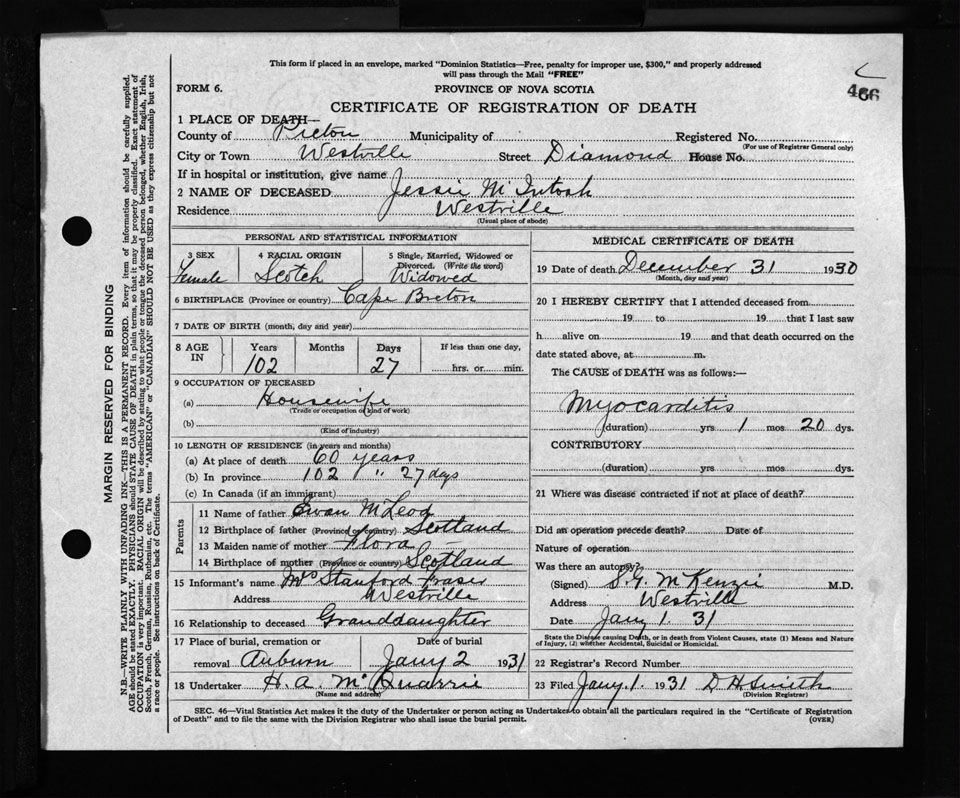 This form if placed in an envelope, marked "Dominion Statistics—Free, penalty for improper use, $300," and properly addressed
will pass through the Mail "FREE"
FORM 6.
PROVINCE OF NOVA SCOTIA
466
CERTIFICATE OF REGISTRATION OF DEATH
1 PLACE OF DEATH—
County of Pictou Municipality of Registered No.
(For use of Registrar General only)
City or Town Westville Street Diamond House No.
If in hospital or institution, give name
2 NAME OF DECEASED Jessie McIntosh
Residence Westville
(Usual place of abode)
PERSONAL AND STATISTICAL INFORMATION
3 SEX Female
4 RACIAL ORIGIN Scotch
5 Single, Married, Widowed or Divorced. (Write the word) Widowed
6 BIRTHPLACE (Province or country) Cape Breton
7 DATE OF BIRTH (month, day and year)
8 AGE IN Years 102 Months Days 27 If less than one day, hrs. or min.
9 OCCUPATION OF DECEASED
(a) Housewife
(Trade or occupation or kind of work)
(b)
(Kind of industry)
10 LENGTH OF RESIDENCE (in years and months)
(a) At place of death 60 years
(b) In province 102 " 27 days
(c) In Canada (if an immigrant)
Parents
11 Name of father Ewan McLeod
12 Birthplace of father (Province or country) Scotland
13 Maiden name of mother Flora —
14 Birthplace of mother (Province or country) Scotland
15 Informant's name Mrs Stanford Fraser
Address Westville
16 Relationship to deceased Granddaughter
17 Place of burial, cremation or removal Auburn Date of burial Jany 2 1931
18 Undertaker H. A. McQuarrie
(Name and address)
MEDICAL CERTIFICATE OF DEATH
19 Date of death December 31 1930
(Month, day and year)
20 I HEREBY CERTIFY that I attended deceased from
19 to 19 that I last saw
h alive on 19 and that death occurred on the
date stated above, at m.
The CAUSE of DEATH was as follows:—
Myocarditis
(duration) yrs 1 mos 20 dys.
CONTRIBUTORY
(duration) yrs. mos. dys.
21 Where was disease contracted if not at place of death?
Did an operation precede death? Date of
Nature of operation
Was there an autopsy?
(Signed) S. G. McKenzie M.D.
Address Westville
Date Jany 1 31
State the Disease causing Death, or in death from Violent Causes, state (1) Means and Nature
of Injury, (2) whether Accidental, Suicidal or Homicidal.
22 Registrar's Record Number
23 Filed Jany. 1. 1931 D H Smith
(Division Registrar)
SEC. 46—Vital Statistics Act makes it the duty of the Undertaker or person acting as Undertaker to obtain all the particulars required in the "Certificate of Registration
of Death" and to file the same with the Division Registrar who shall issue the burial permit.
(OVER)
MARGIN RESERVED FOR BINDING
N.B.—WRITE PLAINLY WITH UNFADING INK—THIS IS A PERMANENT RECORD. Every item of information should be carefully supplied.
AGE should be stated EXACTLY. PHYSICIANS should STATE CAUSE OF DEATH in plain terms, so that it may be properly classified. Exact statement of
OCCUPATION is very important. RACIAL ORIGIN will be described by stating to what people or tongue the deceased person belonged, whether English, Irish,
Scotch, French, German, Russian, Ruthenian, etc. The terms "AMERICAN" or "CANADIAN" SHOULD NOT BE USED as they express citizenship but not
a race or people. See instructions on back of Certificate.